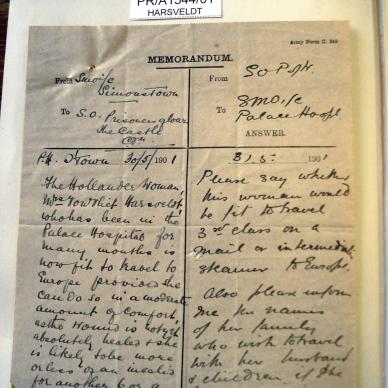 PR/A1544/01
HARSVELDT
Army Form C. 348
MEMORANDUM.
From Smo i/c
Simonstown
To S.O. Prisoners of war
The Castle
PH. S Town 30/5/1901
The Hollander Woman,
Mrs Harsveldt
who has been in the
Palace Hospital for
many months is
now fit to travel to
Europe provided she
can do so in a moderate
amount of comfort,
as the wound is not yet
absolutely healed & she
is likely to be more
or less of an invalid
for another 6 or a
From S o P/W.
To SMO i/c
Palace Hospl
ANSWER.
31.5. 1901
Please say whether
this woman would
be fit to travel
3rd class on a
mail or intermediate
steamer to Europe.
Also please inform
me the names
of her family
who wish to travel
with her husband
& children, if the